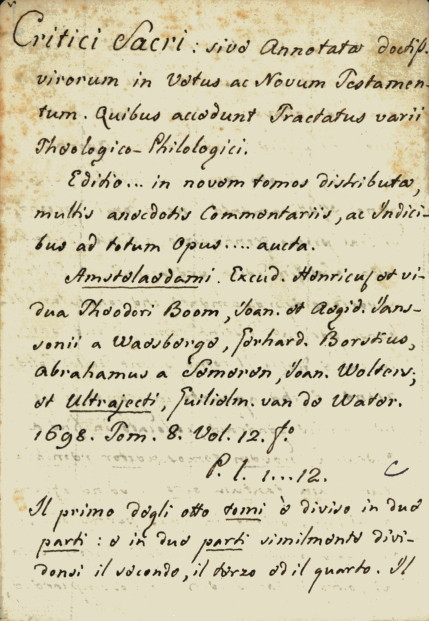 Critici Sacri: sive Annotata doctiss.
virorum in Vetus ac Novum Testamen-
tum. Quibus accedunt Tractatus varii
Theologico-Philologici.
Editio... in novem tomos distributa,
multis anecdotis Commentariis, ac Indici-
bus ad totum Opus.... aucta.
Amstelaedami. Excud. Henricus et vi-
dua Theodori Boom, Joan. et Aegid. Jans-
sonii a Waesberge, Gerhard. Borstius,
Abrahamus a Someren, Joan. Wolters;
et Ultrajecti, Guilielm. van de Water.
1698. Tom. 8. Vol. 12. fo.
P. l. 1...12. C
Il primo degli otto tomi è diviso in due
parti: e in due parti similmente divi-
donsi il secondo, il terzo ed il quarto. Il